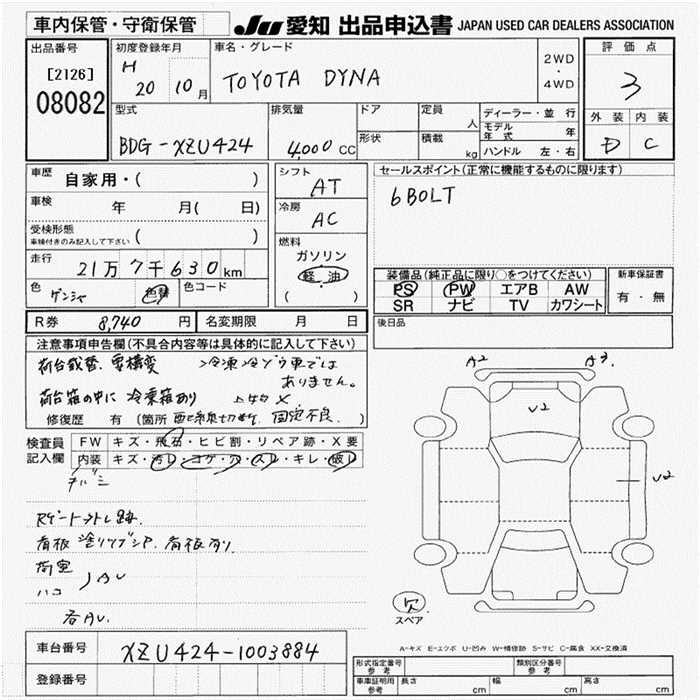 車内保管・守衛保管 JU 愛知 出品申込書 JAPAN USED CAR DEALERS ASSOCIATION
出品番号 初度登録年月 車名・グレード 2WD・4WD 評価点
[2126] H 20 10月 TOYOTA DYNA 3
08082
型式 排気量 ドア 定員 人 ディーラー・並行 外装 内装
BDG-XZU424 4,000 CC 形状 積載 kg モデル年式 年 D C
ハンドル 左・右
車歴 自家用・( ) シフト AT セールスポイント(正常に機能するものに限ります)
車検 年 月( 日) 冷房 AC 6BOLT
受検形態 車検付きのみ記入して下さい ( )
燃料 ガソリン 軽油 ( )
走行 21万7千630km
装備品(純正品に限り○をつけてください) 新車保証書
色 ゲンシャ 色替 色コード PS PW エアB AW 有・無
SR ナビ TV カワシート
R券 8,740円 名変期限 月 日 後日品
注意事項申告欄(不具合内容等は具体的に記入して下さい)
荷台載替、要構変 冷凍冷ゾウ車では
ありません。
荷台箱の中に 冷乗箱あり
修復歴 有 (箇所 固定不良. )
検査員記入欄 FW キズ・飛石・ヒビ割・リペア跡・X要
内装 キズ・汚レ・コゲ・穴・スレ・キレ・破レ
A2 A3
U2
U2
Rゲート
看板 看板有り.
ハコ AU
各AU.
欠
スペア
A-キズ E-エクボ U-凹み W-補修跡 S-サビ C-腐食 XX-交換済
車台番号 XZU424-1003884
登録番号
形式指定番号 参考 類別区分番号 参考
車庫証明用 参考 長さ cm 幅 cm 高さ cm